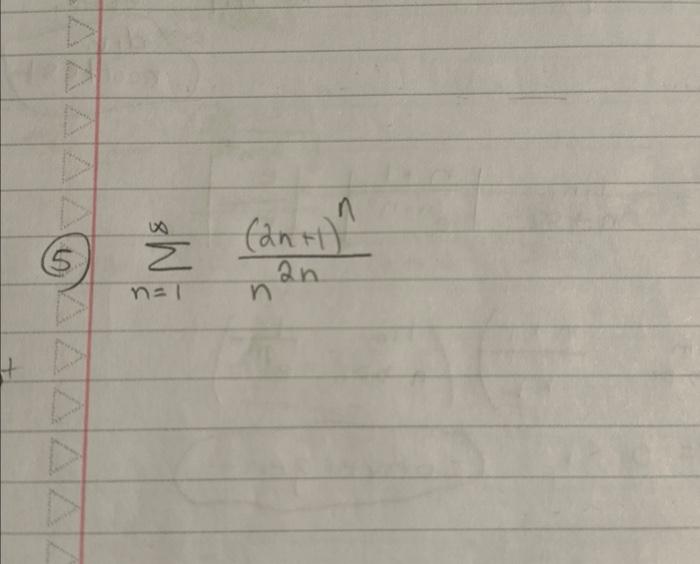 ⑤ ∞ Σ n=1 (2n+1)^n / n^2n
+